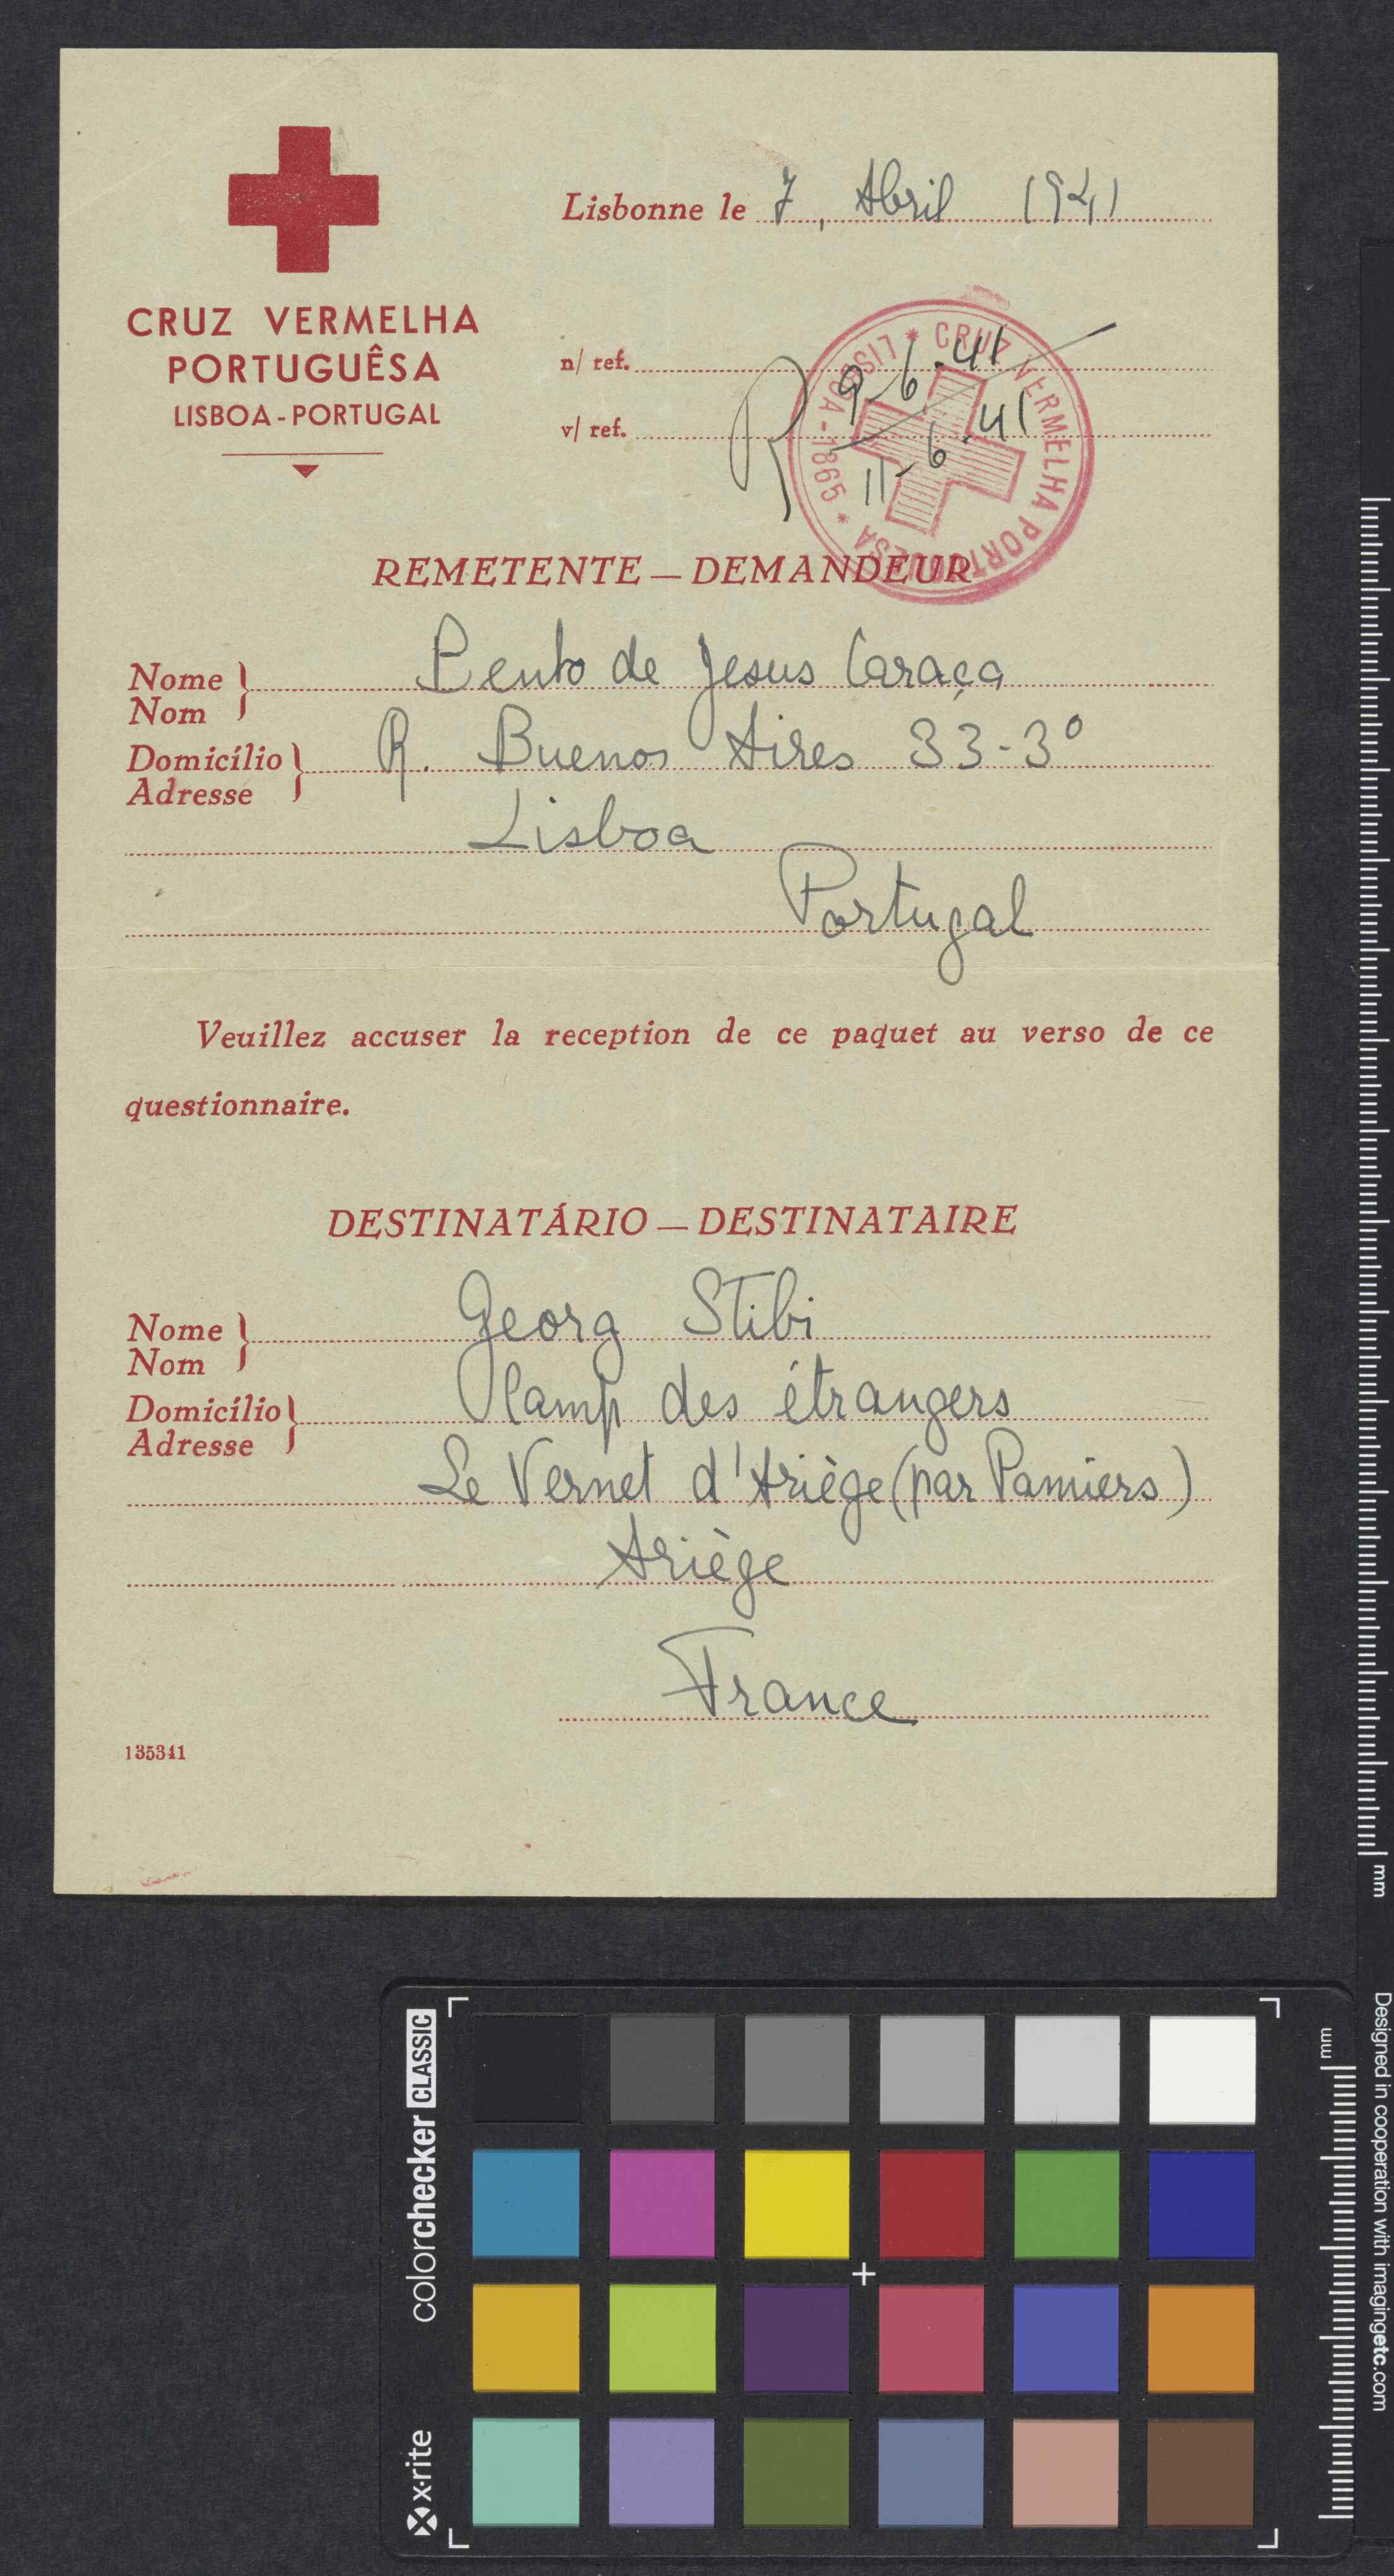 Lisbonne le 7, Abril 1941
CRUZ VERMELHA
PORTUGUÊSA
LISBOA - PORTUGAL
n/ ref.
v/ ref.
R 9-6-41
11-6-41
LISBOA - 1865 * CRUZ VERMELHA PORTUGUESA *
REMETENTE — DEMANDEUR
Nome
Nom
Bento de Jesus Caraça
Domicílio
Adresse
R. Buenos Aires 33-3º
Lisboa
Portugal
Veuillez accuser la reception de ce paquet au verso de ce
questionnaire.
DESTINATÁRIO — DESTINATAIRE
Nome
Nom
Georg Stibi
Domicílio
Adresse
Camp des étrangers
Le Vernet d'Ariège (par Pamiers)
Ariège
France
135341
mm
Designed in cooperation with imagingetc.com
mm
colorchecker CLASSIC
x-rite